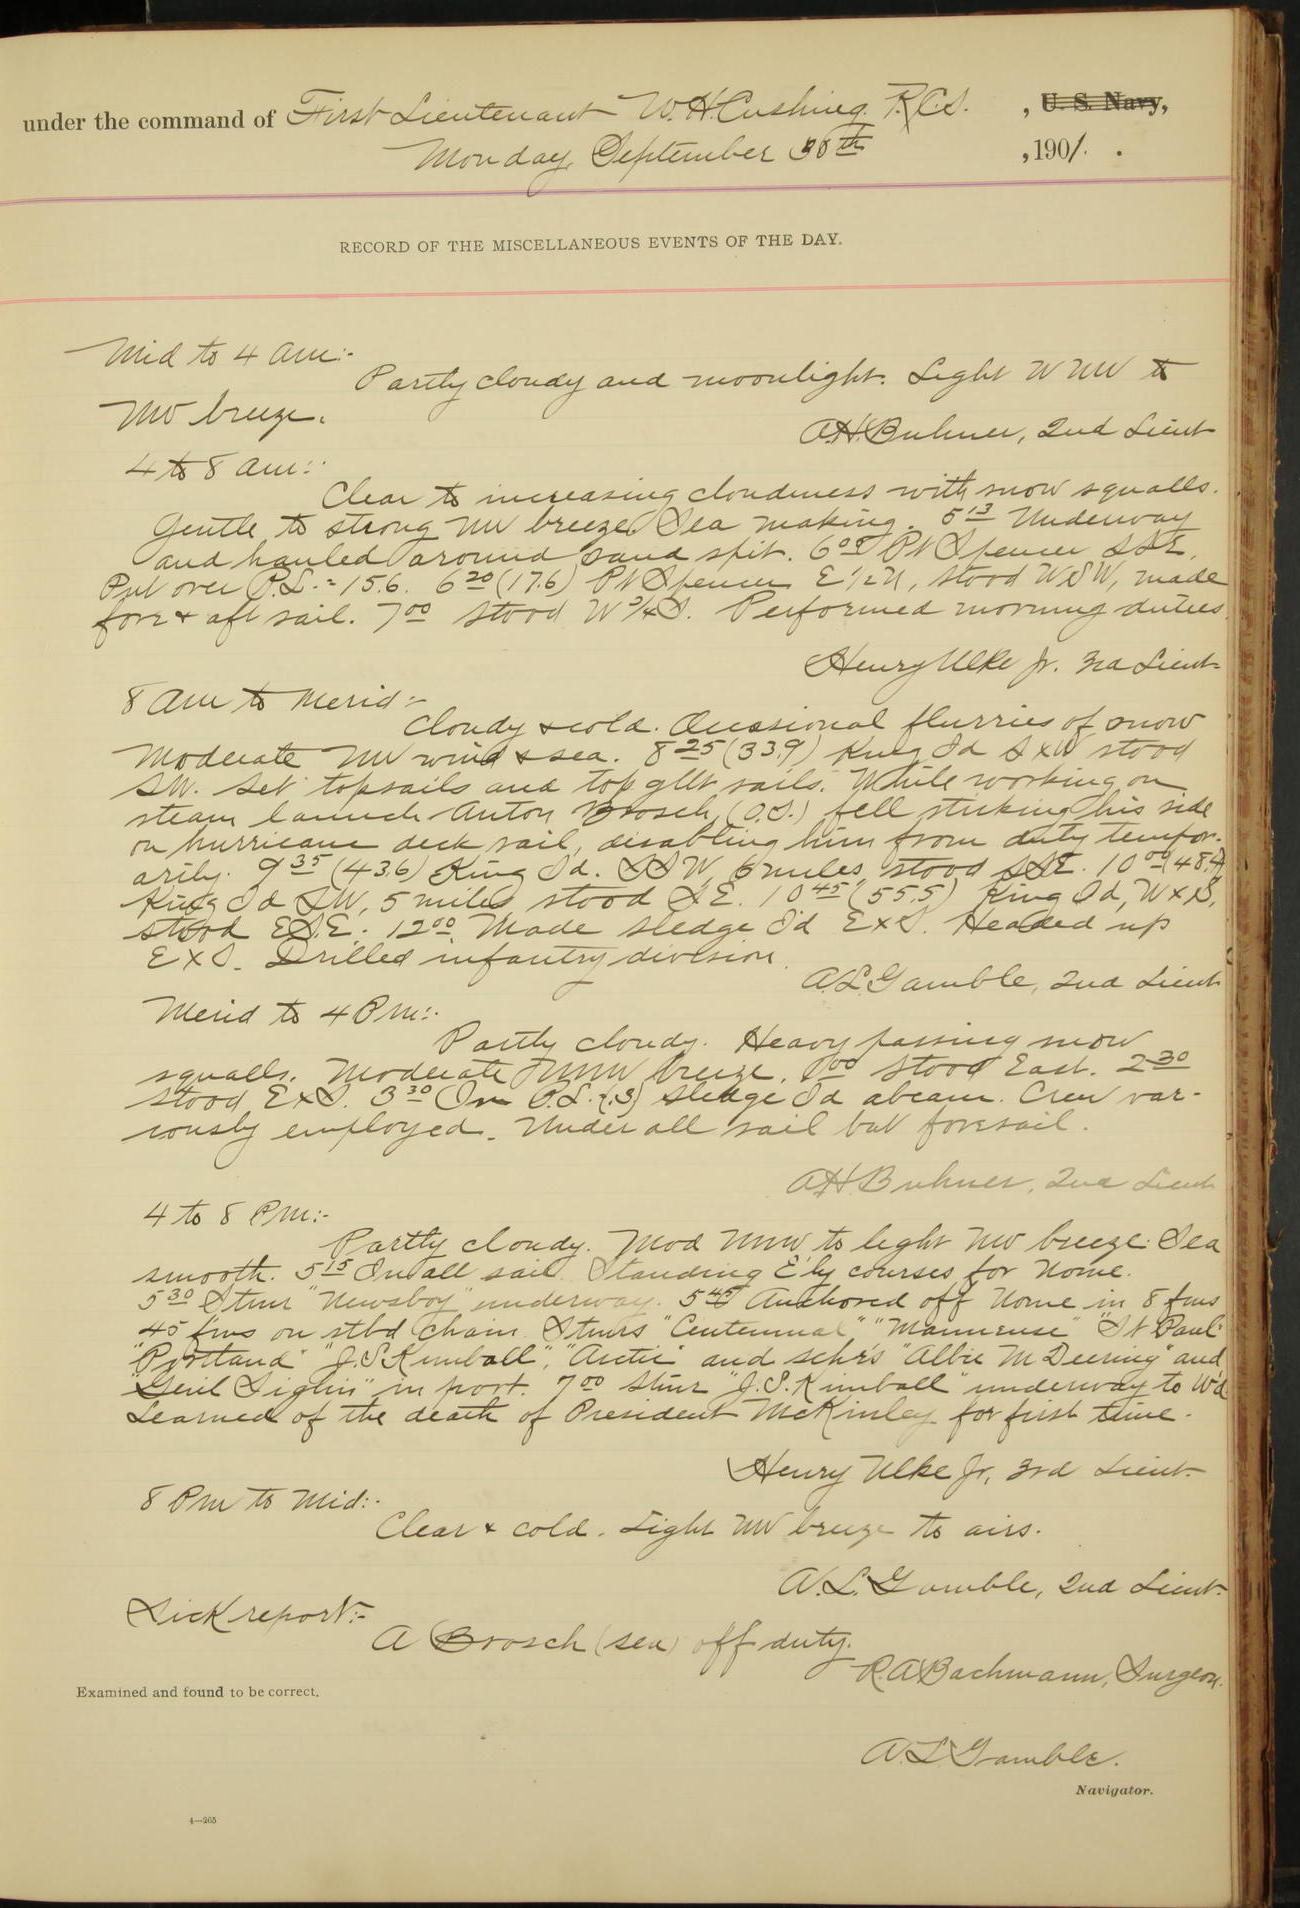 under the command of First Lieutenant W.H. Cushing. R.C.S. , U. S. Navy,
Monday, September 30th ,1901.
RECORD OF THE MISCELLANEOUS EVENTS OF THE DAY.
Mid to 4 am:-
Partly cloudy and moonlight. Light WNW to
NW breeze.
A.H. Buhner, 2nd Lieut
4 to 8 am:-
Clear to increasing cloudiness with snow squalls.
Gentle to strong NW breeze. Sea making. 5 13 Underway
and hauled around sand spit. 6 09 Pt Spencer SSE.
Put over P.L. = 15.6. 6 20 (17.6) Pt Spencer E 1/2 N, stood WSW, made
fore & aft sail. 7 00 stood W 3/4 S. Performed morning duties.
Henry Ulke Jr. 3rd Lieut-
8 am to Merid:-
Cloudy & cold. Occasional flurries of snow
Moderate NW wind & sea. 8 25 (33.9) King Id S x W stood
SW. Set topsails and top gllt sails. While working on
steam launch Anton Brosch, (O.S.) fell striking his side
on hurricane deck rail, disabling him from duty tempor-
arily. 9 35 (43.6) King Id. SSW, 6 miles, stood SSE. 10 00 (48.4)
King Id SW, 5 miles stood SE. 10 45 (55.5) King Id, W x S,
stood ESE. 12 00 Made Sledge I'd E x S. Headed up
E x S. Drilled infantry division.
A.L. Gamble, 2nd Lieut
Merid to 4 Pm:-
Partly cloudy. Heavy passing snow
squalls. Moderate NNW breeze. 1 00 stood East. 2 30
stood E x S. 3 30 In P.L. Sledge Id abeam. Crew var-
iously employed. Under all sail but foresail.
A.H. Buhner, 2nd Lieut
4 to 8 Pm:-
Partly cloudy. Mod NNW to light NW breeze. Sea
smooth. 5 15 In all sail. Standing E'ly courses for Nome.
5 30 Stmr "Newsboy" underway. 5 45 Anchored off Nome in 8 fms
45 fms on stbd chain. Stmrs "Centennial" "Manuense" "St Paul"
"Portland" "J.S. Kimball", "Arctic" and schrs "Albie M Deering" and
"Genl Siglin" in port. 7 00 Stmr "J.S. Kimball" underway to W'd
Learned of the death of President McKinley for first time.
Henry Ulke Jr, 3rd Lieut-
8 Pm to Mid:-
Clear & cold. Light NW breeze to airs.
A.L. Gamble, 2nd Lieut-
Sick report:-
A Brosch (sea) off duty.
R.A. Bachmann, Surgeon.
Examined and found to be correct.
A.L. Gamble.
Navigator.
4—265